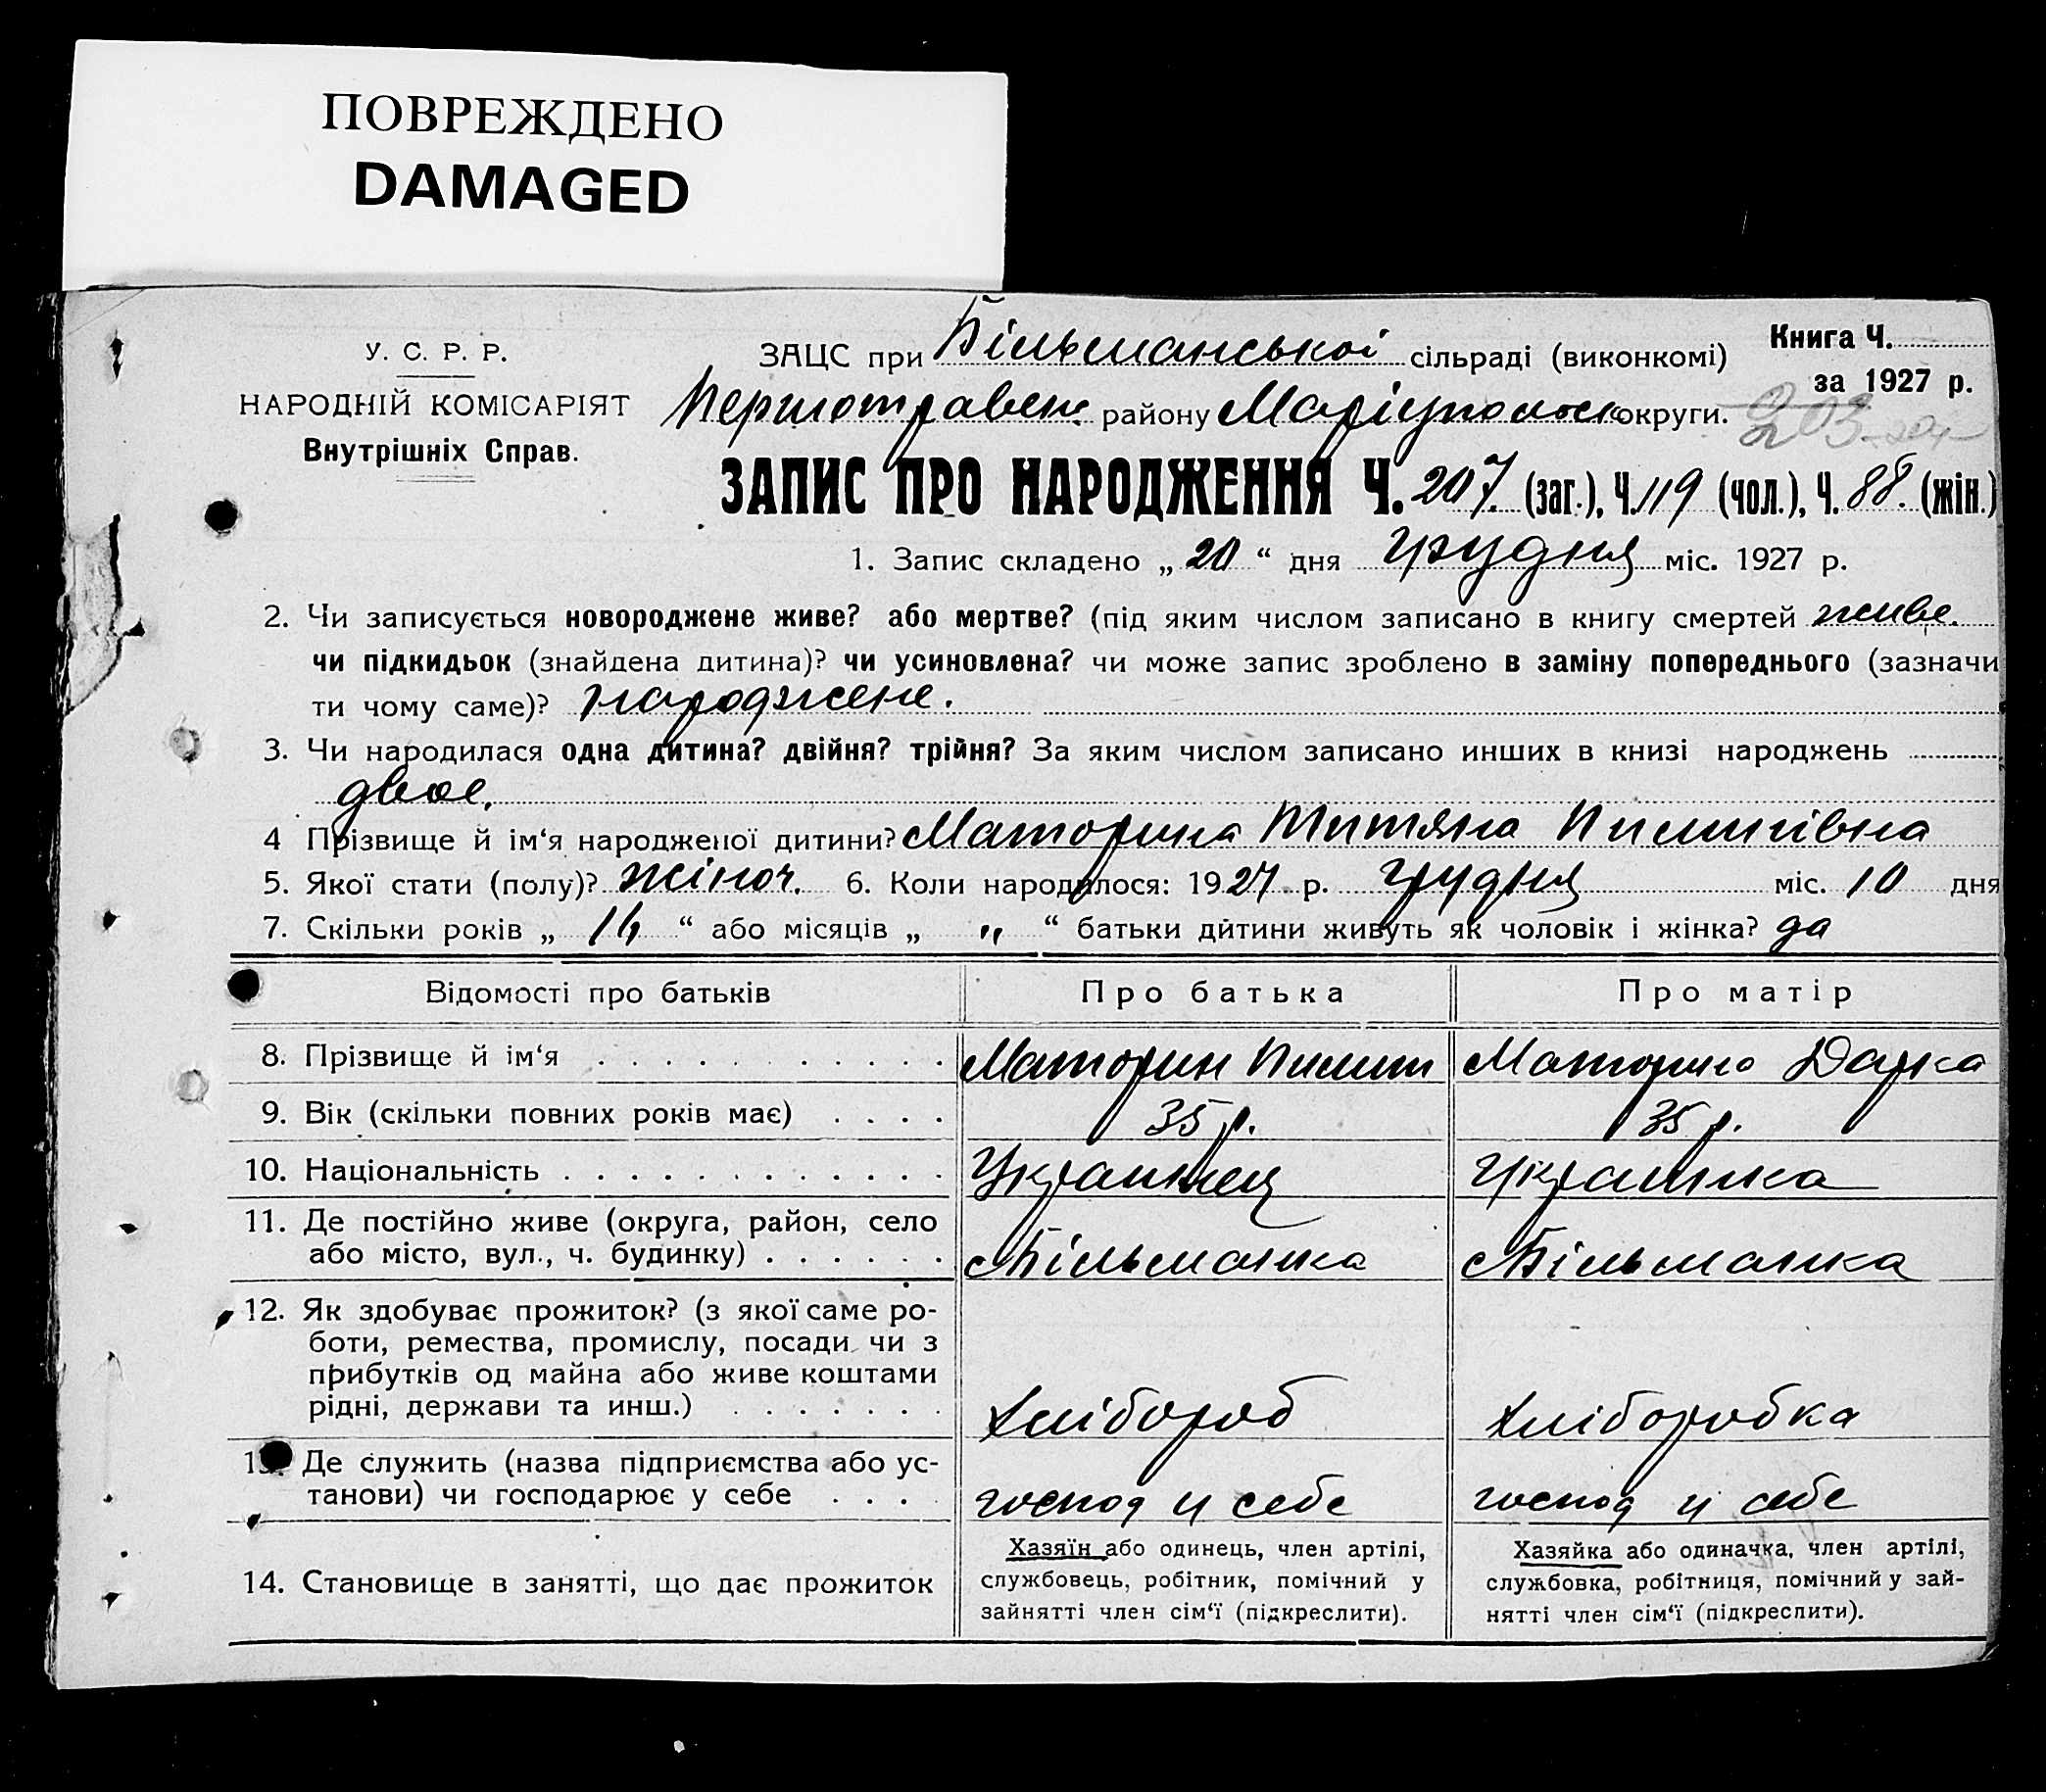 ПОВРЕЖДЕНО
DAMAGED
У. С. Р. Р.
НАРОДНІЙ КОМІСАРІЯТ
Внутрішніх Справ.
ЗАЦС при Більманській сільраді (виконкомі)
Книга Ч.
за 1927 р.
Першотравен. району Маріупольск округи.
203
ЗАПИС ПРО НАРОДЖЕННЯ Ч. 207. (заг.), Ч. 119 (чол.), Ч. 88. (жін.)
1. Запис складено „ 20 “ дня Грудня міс. 1927 р.
2. Чи записується новороджене живе? або мертве? (під яким числом записано в книгу смертей живе.
чи підкидьок (знайдена дитина)? чи усиновлена? чи може запис зроблено в заміну попереднього (зазначи
ти чому саме)? народжене.
3. Чи народилася одна дитина? двійня? трійня? За яким числом записано инших в книзі народжень
двое.
4 Прізвище й ім‘я народженої дитини? Маторина Титяна Пилипівна
5. Якої стати (полу)? жіноч. 6. Коли народилося: 1927 р. Грудня міс. 10 дня
7. Скільки років „ 14 “ або місяців „ „ “ батьки дитини живуть як чоловік і жінка? да
Відомості про батьків
Про батька
Про матір
8. Прізвище й ім‘я
Маторин Пилип
Маторина Дарка
9. Вік (скільки повних років має)
35 р.
35 р.
10. Національність
Украинец
Украинка
11. Де постійно живе (округа, район, село
або місто, вул., ч. будинку)
с Більманка
с Більманка
12. Як здобуває прожиток? (з якої саме ро-
боти, ремества, промислу, посади чи з
прибутків од майна або живе коштами
рідні, держави та инш.)
Хлібороб
Хліборобка
13. Де служить (назва підприємства або ус-
танови) чи господарює у себе
господ у себе
господ у себе
14. Становище в занятті, що дає прожиток
Хазяїн або одинець, член артілі,
службовець, робітник, помічний у
зайнятті член сім‘ї (підкреслити).
Хазяйка або одиначка, член артілі,
службовка, робітниця, помічний у зай-
нятті член сім‘ї (підкреслити).